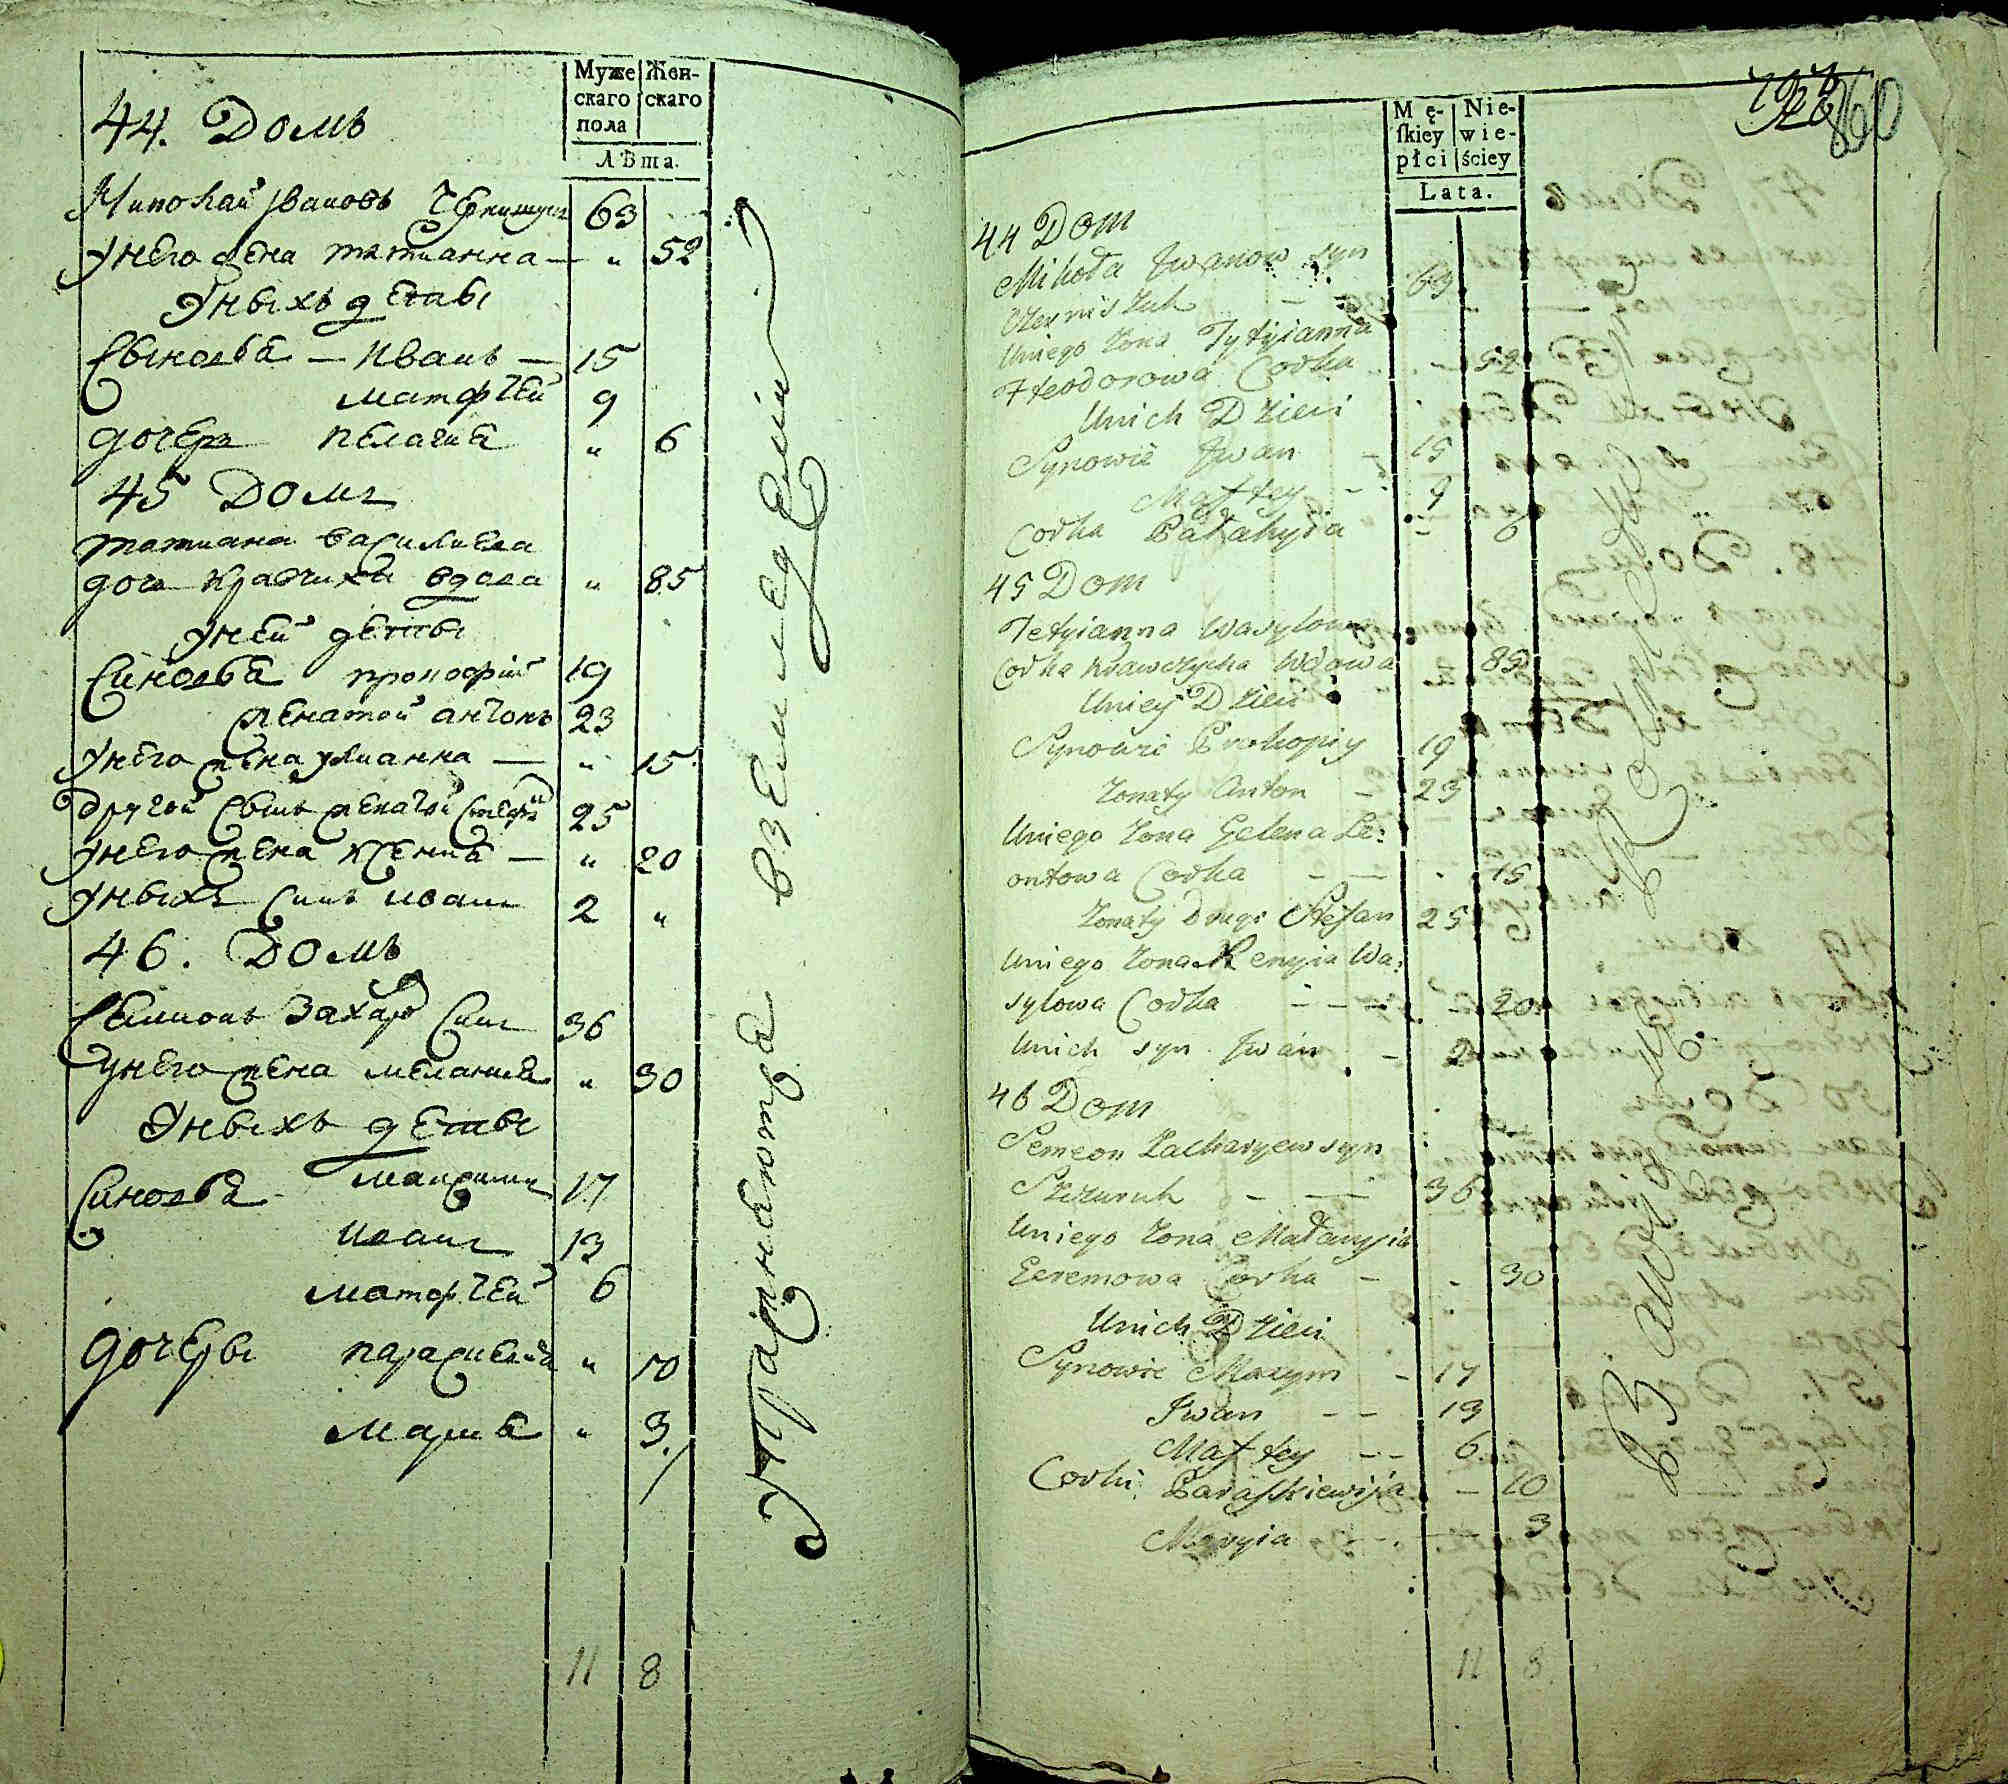 Муже Жен-
скаго скаго
пола
Лѣта.
44. Домъ
Миколай Ивановъ 63
Унего жена татианна — " 52
Уныхъ дѣты
Сыновѣ — Иванъ — 15
матфѣй 9
дочерь пелагиѣ " 6
45 Домъ
татиана василиева
доч кравчиха вдова " 85
Уней дѣты
Синовѣ прокофій 19
женатой антонъ 23
Унего жена улианна — " 15
другой сынъ женатой 25
Унего жена ксениѣ — " 20
Уныхъ синъ иванъ 2 "
46. Домъ
Семионъ Захаро синъ 36
Унего жена меланиѣ " 30
Уныхъ дѣты
Синовѣ максимъ 17
иванъ 13
матфѣй 6
дочеры параскевиѣ " 10
мариѣ " 3
11 8
вземледелии
Mę- Nie-
ſkiey wie-
płci ściey
Lata.
860
44 Dom
Mikoła Iwanow syn 63
Czerniszuk
Uniego żona Tytyianna
Fteodorowa Corka 52
Unich Dzieci
Synowie Iwan 15
Maftey 9
Corka Pałahyia 6
45 Dom
Tetyianna Wasylowa
Corka Krawczycha Wdowa 85
Uniey Dzieci
Synowie Prokopiy 19
Zonaty Anton 23
Uniego Zona Gelena Le:
ontowa Corka 15
Zonaty Drugi Stefan 25
Uniego Zona Kenyia Wa:
sylowa Corka 20
Unich syn Iwan 2
46 Dom
Semeon Zacharyew syn
36
Uniego Zona Małanyia
Eeremowa Corka 30
Unich Dzieci
Synowie Maxym 17
Iwan 13
Maftey 6
Corki Paraſkiewiia 10
Maryia 3
11 8